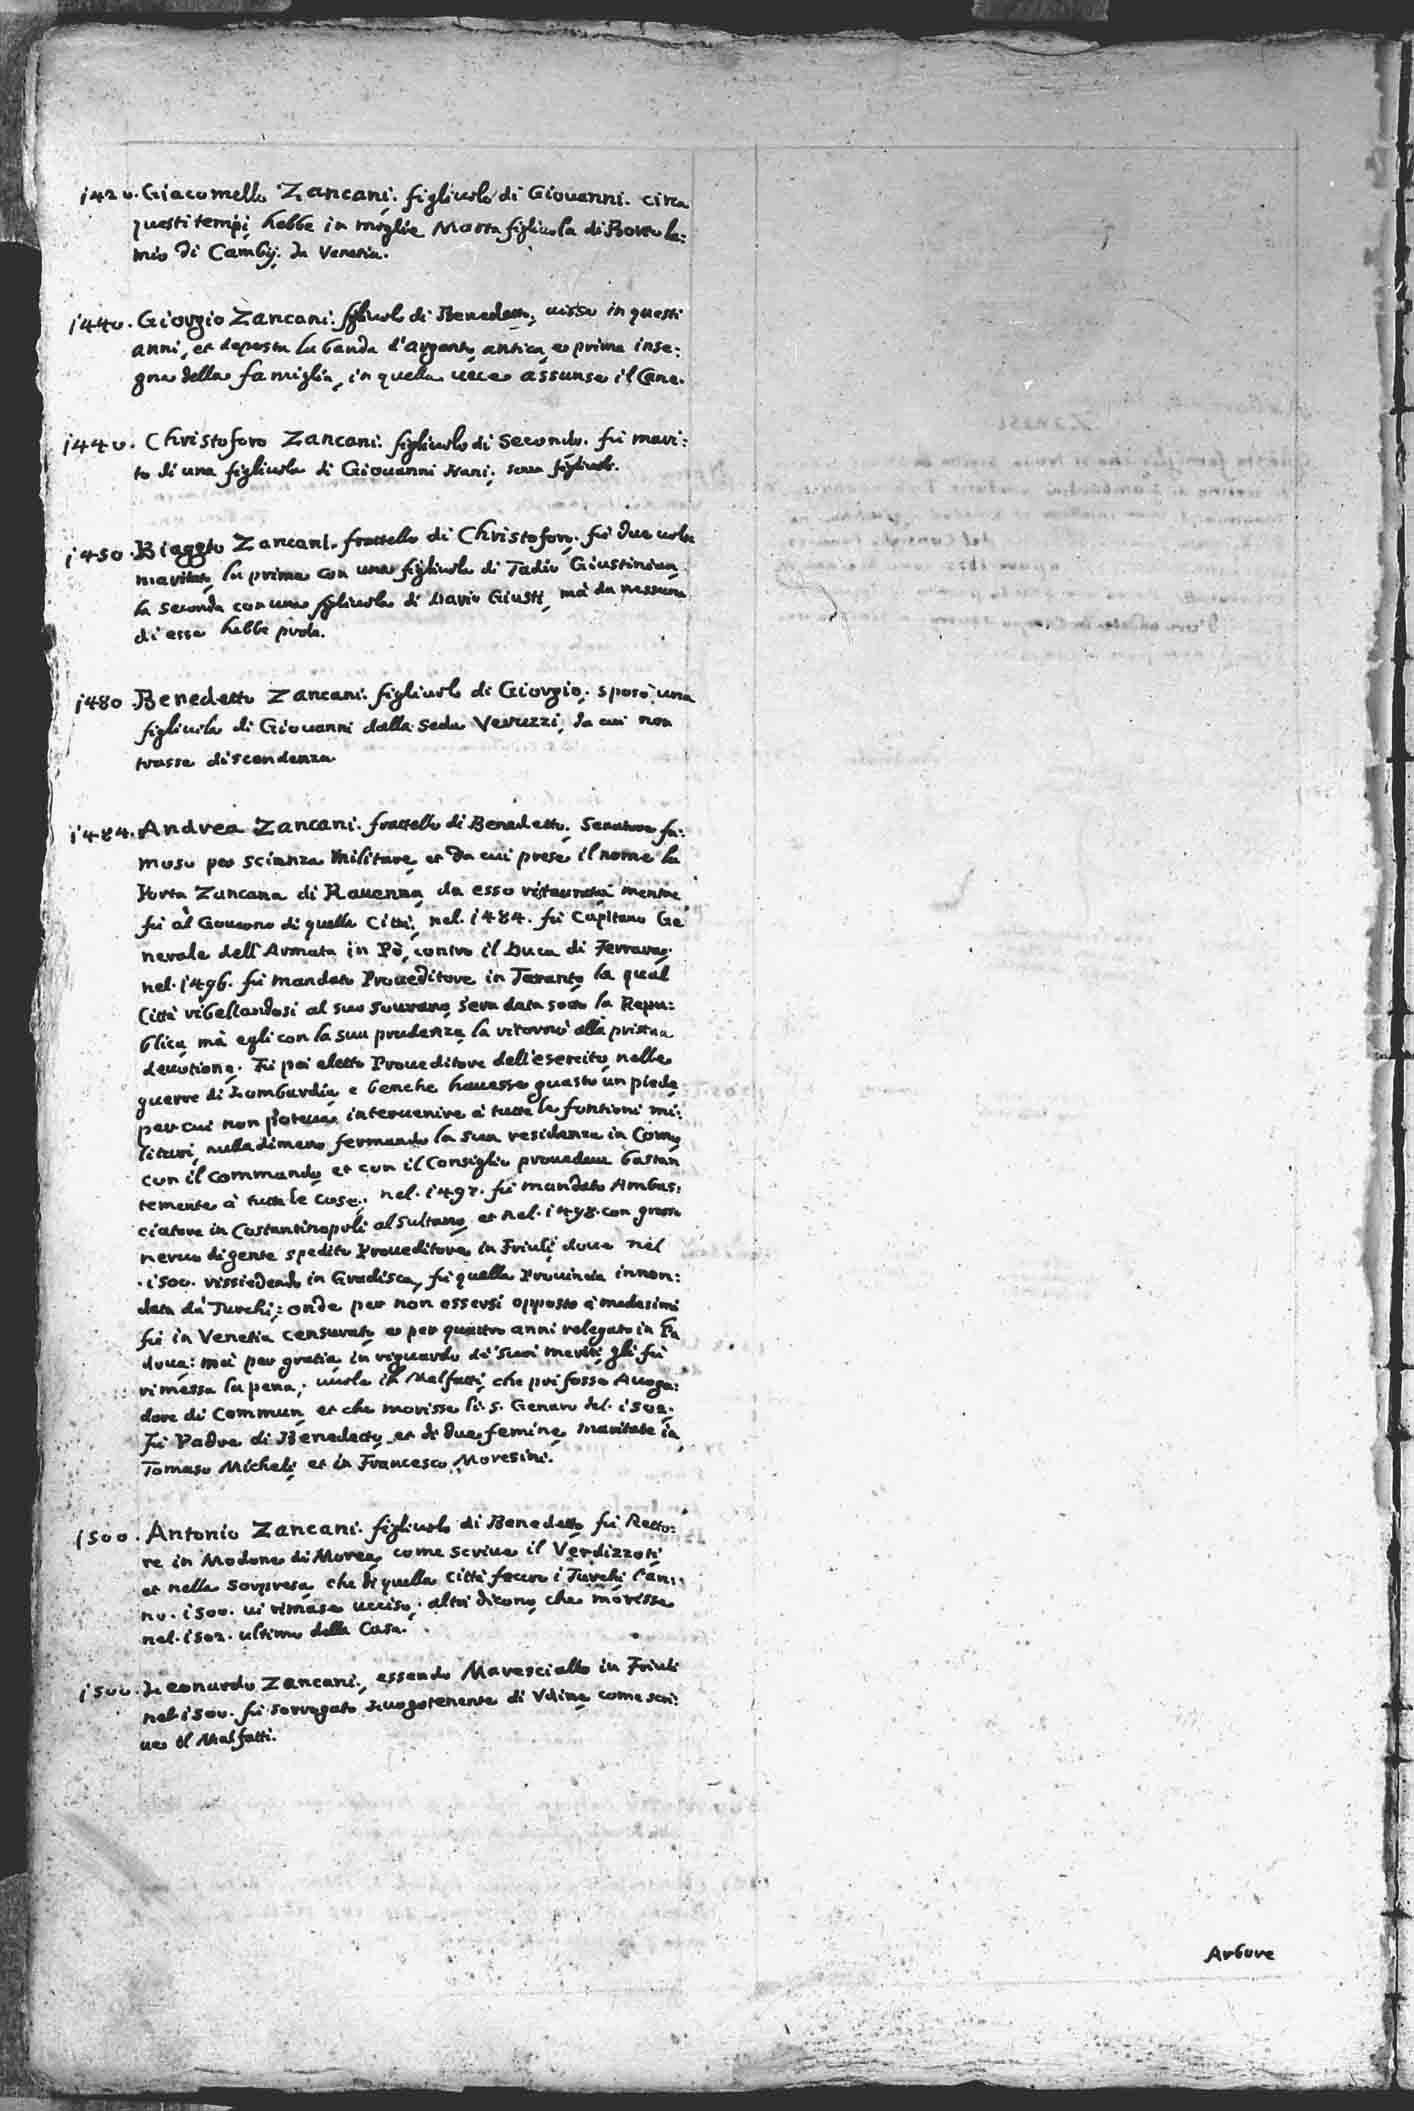 1420. Giacomello Zancani. figliuolo di Giouanni. circa
questi tempi hebbe in moglie Marta figliuola di Bortola:
mio di Cambij. da Venetia.
1440. Giorgio Zancani. figliuolo di Benedetto, uisse in questi
anni, et deposta la banda d'argento, antica, e prima inse:
gna della famiglia, in quella uece assunse il Cane.
1440. Christoforo Zancani. figliuolo di Secondo. fù mari:
to di una figliuola di Giouanni Nani, senza figliuoli.
1450. Biaggio Zancani. frattello di Christoforo. fù due uolte
maritato, la prima con una figliuola di Tadio Giustinian,
la seconda con una figliuola di Dario Giusti, mà da nessuna
di esse hebbe prole.
1480. Benedetto Zancani. figliuolo di Giorgio, sposò una
figliuola di Giouanni dalla Seda Veruzzi, da cui non
trasse discendenza.
1484. Andrea Zancani. frattello di Benedetto, Senatore fa:
moso per scienza Militare, et da cui prese il nome la
Porta Zancana di Rauenna, da esso ristaurata mentre
fù al Gouerno di quella Città, nel. 1484. fù Capitano Ge
nerale dell'Armata in Pò, contro il Duca di Ferrara,
nel. 1496. fù mandato Proueditore in Taranto, la qual
Città ribellandosi al suo Sourano, s'era data sotto la Repu:
blica, mà egli con la sua prudenza, la ritornò alla pristina
deuotione. Fù poi eletto Proueditore dell'esercito, nelle
guerre di Lombardia, e benche hauesse guasto un piede,
per cui non poteua interuenire à tutte le fontioni mi:
litari, nulladimeno fermando la sua residenza in Como,
con il Commando, et con il Consiglio prouedeua bastan
temente à tutte le cose, nel. 1497. fù mandato Ambas:
ciatore in Costantinopoli al Sultano, et nel. 1498. con grosso
neruo di gente spedito Proueditore in Friuli, doue nel
.1500. rissiedendo in Gradisca, fù quella Prouincia innon:
data da Turchi; onde per non essersi opposto à medesimi
fù in Venetia censurato, e per quattro anni relegato in Pa
doua: mà per gratia, in riguardo de' suoi meriti gli fù
rimessa la pena, uuole il Malfatti, che poi fosse Auoga:
dore di Commun, et che morisse li. 5. Genaro del. 1502.
Fù Padre di Benedetto, et di due femine, maritate in
Tomaso Micheli, et in Francesco Moresini.
1500. Antonio Zancani. figliuolo di Benedetto, fù Retto:
re in Modone di Morea, come scriue il Verdizzoti,
et nella sorpresa, che di quella Città fecero i Turchi l'an:
no. 1500. ui rimase ucciso, altri dicono, che morisse
nel. 1502. ultimo della Casa.
1500. Leonardo Zancani, essendo Maresciallo in Friuli
nel 1500. fù sorrogato Luogotenente di Vdine, come scri:
ue il Malfatti.
Arbore